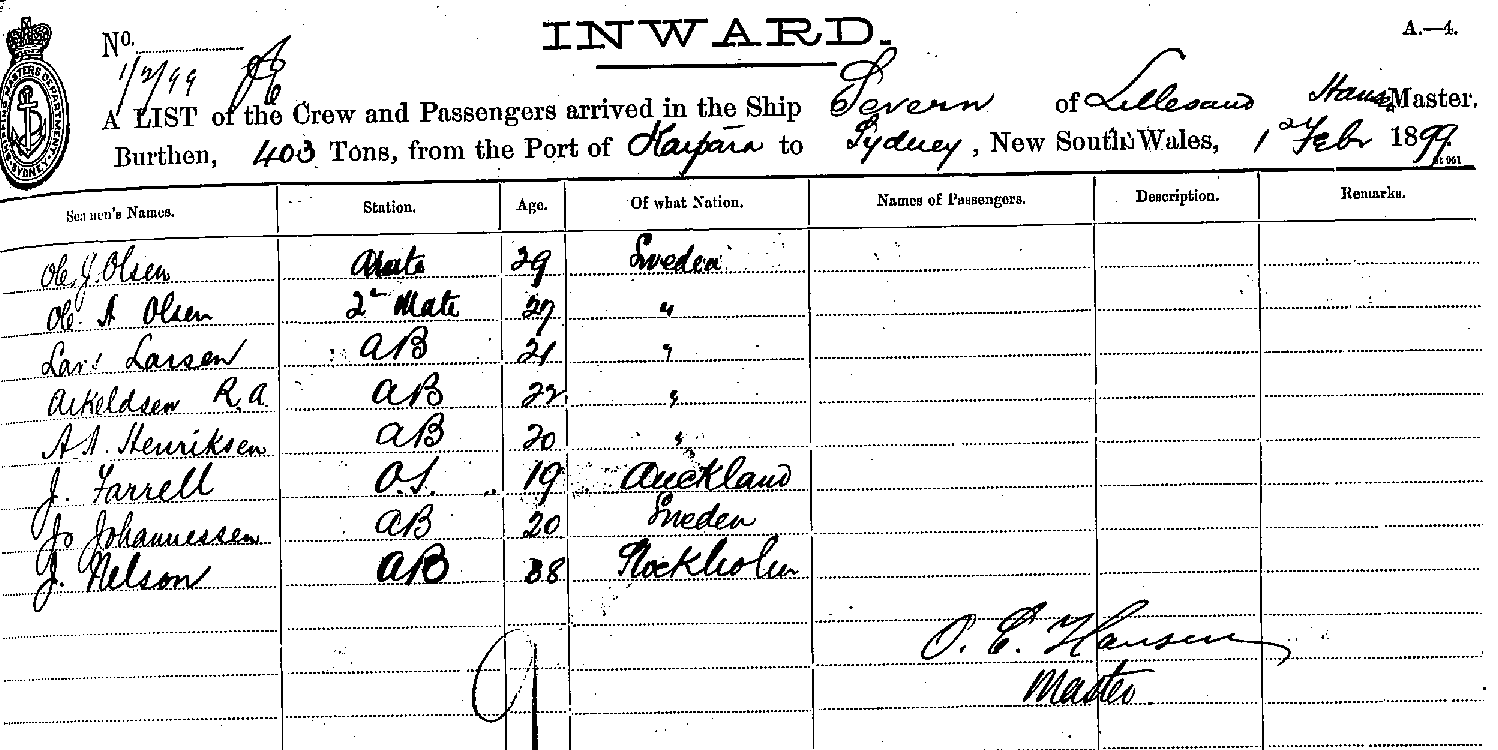 INWARD.
A.—4.
No.
1/2/99
A LIST of the Crew and Passengers arrived in the Ship Severn of Lillesand Hansen Master,
Burthen, 403 Tons, from the Port of Kaipara to Sydney, New South Wales, 1st Febr 1899
Seamen's Names. Station. Age. Of what Nation. Names of Passengers. Description. Remarks.
Ole J. Olsen Mate 29 Sweden
Ole A Olsen 2nd Mate 27 "
Lars Larsen AB 21 "
Askeldsen R. A. AB 22 "
A A. Henriksen AB 20 "
J. Farrell O.S. 19 Auckland
Jo Johannessen AB 20 Sweden
J. Nelson AB 38 Stockholm
O. E. Hansen
9
Master.